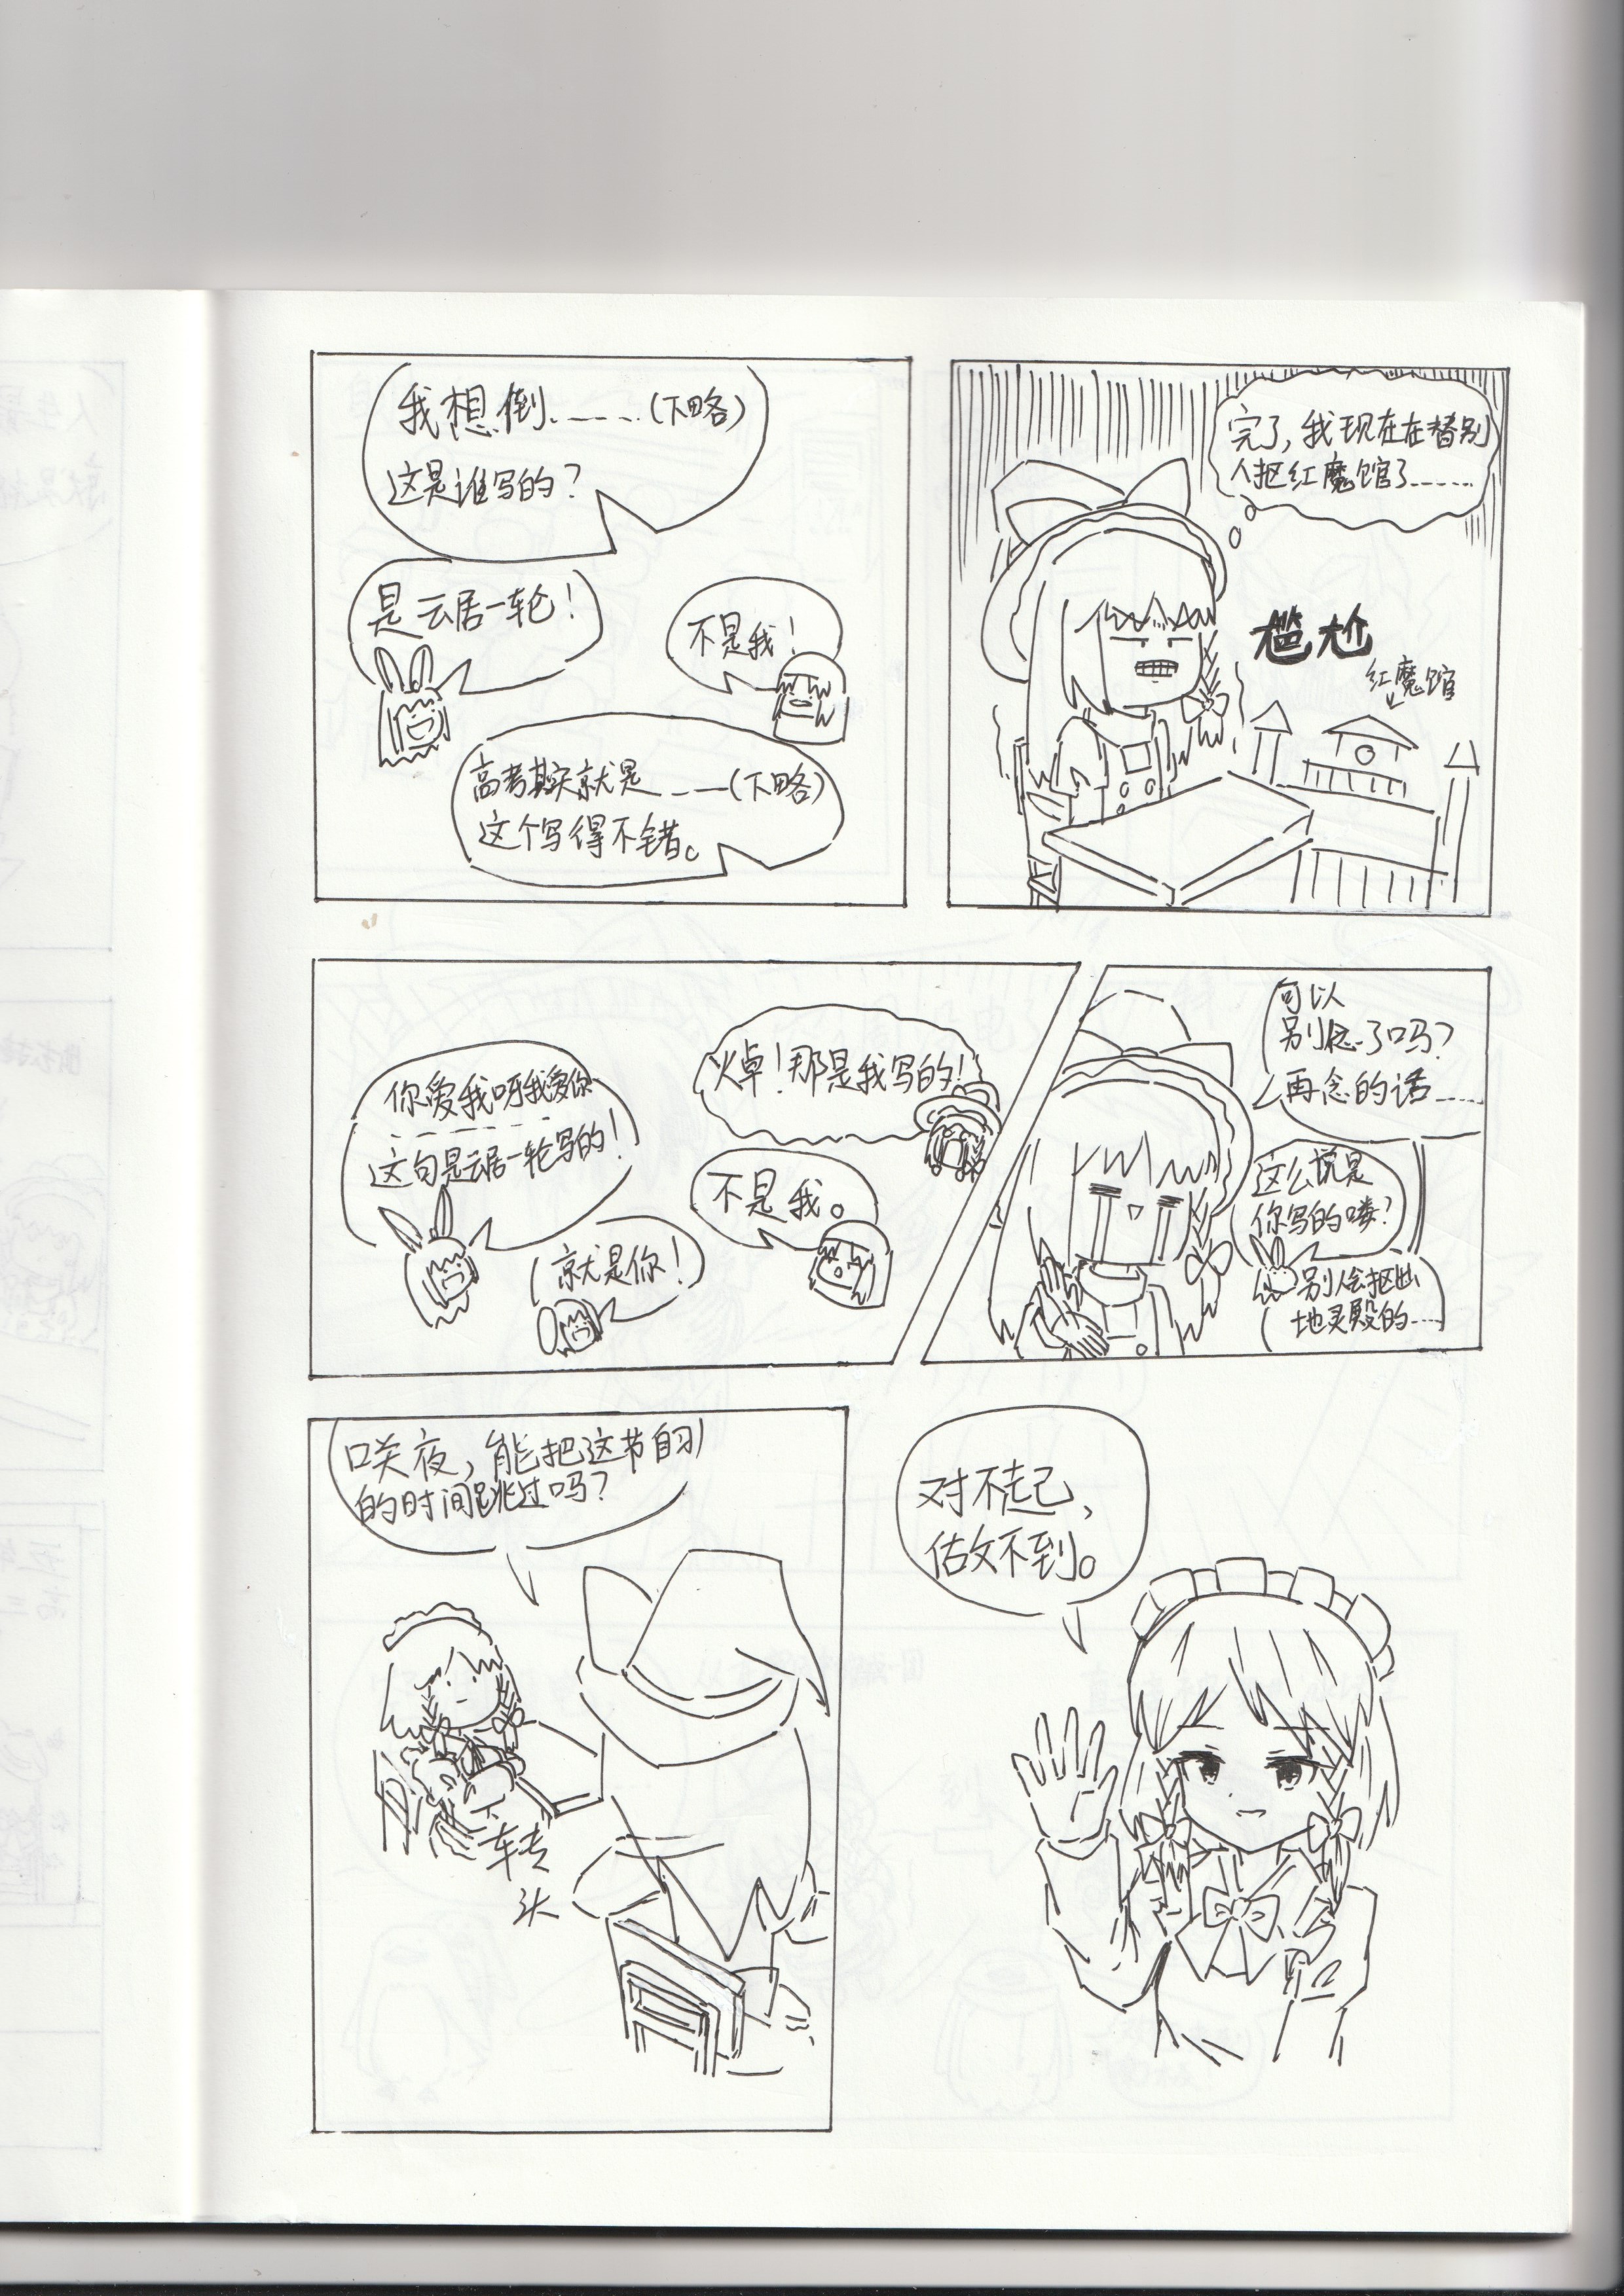 我想倒......(下略)
这是谁写的?
是云居一轮!
不是我!
高考其实就是...(下略)
这个写得不错。
完了,我现在在替别
人抠红魔馆了......
尴尬
红魔馆
你爱我呀我爱你
这句是云居一轮写的!
焯!那是我写的!
不是我。
就是你!
可以
别念了吗?
再念的话......
这么说是
你写的喽?
别人会抠出
地灵殿的....
咲夜,能把这节自习
的时间跳过吗?
转
头
对不起,
估文不到。